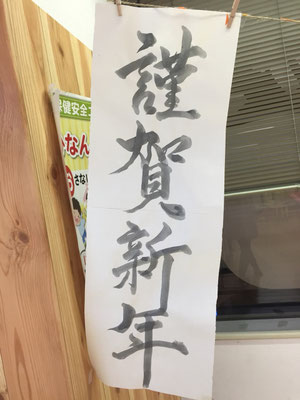 謹賀新年
保健安全
なん
さない